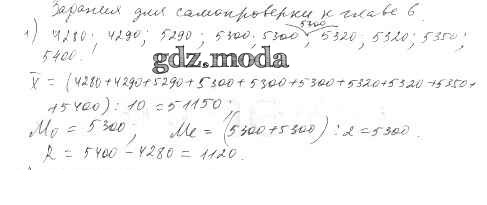 Задания для самопроверки к главе 6.
1) 4280; 4290; 5290; 5300; 5300; 5300; 5320; 5320; 5350;
5400.
gdz.moda
X̄ = (4280+4290+5290+5300+5300+5300+5320+5320+5350+
+5400) : 10 = 51150;
Mo = 5300; Me = (5300+5300) : 2 = 5300.
R = 5400 - 4280 = 1120.